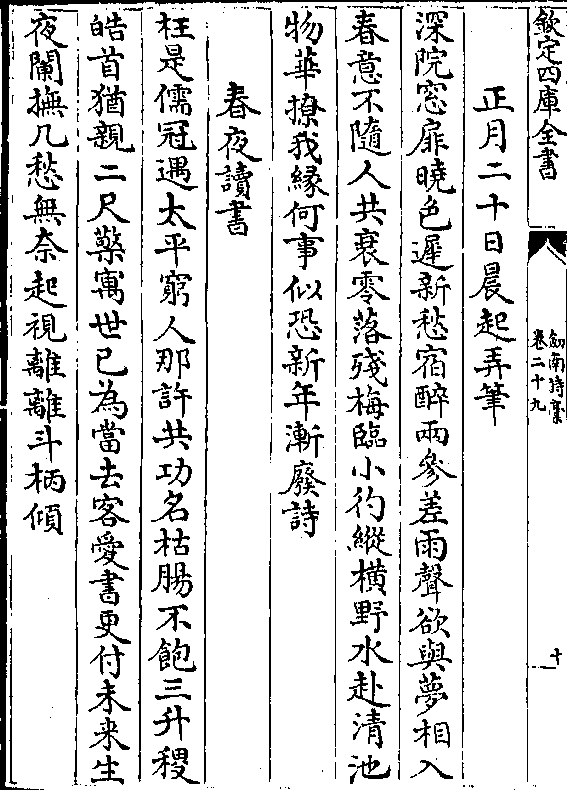 欽定四庫全書
劍南詩稾
卷二十九
十
正月二十日晨起弄筆
深院窓扉曉色遲新愁宿醉兩參差雨聲欲與夢相入
春意不隨人共衰零落殘梅臨小彴縱橫野水赴清池
物華撩我緣何事似恐新年漸廢詩
春夜讀書
枉是儒冠遇太平窮人那許共功名枯腸不飽三升稷
皓首猶親二尺檠寓世已為當去客愛書更付未来生
夜闌撫几愁無奈起視離離斗柄傾